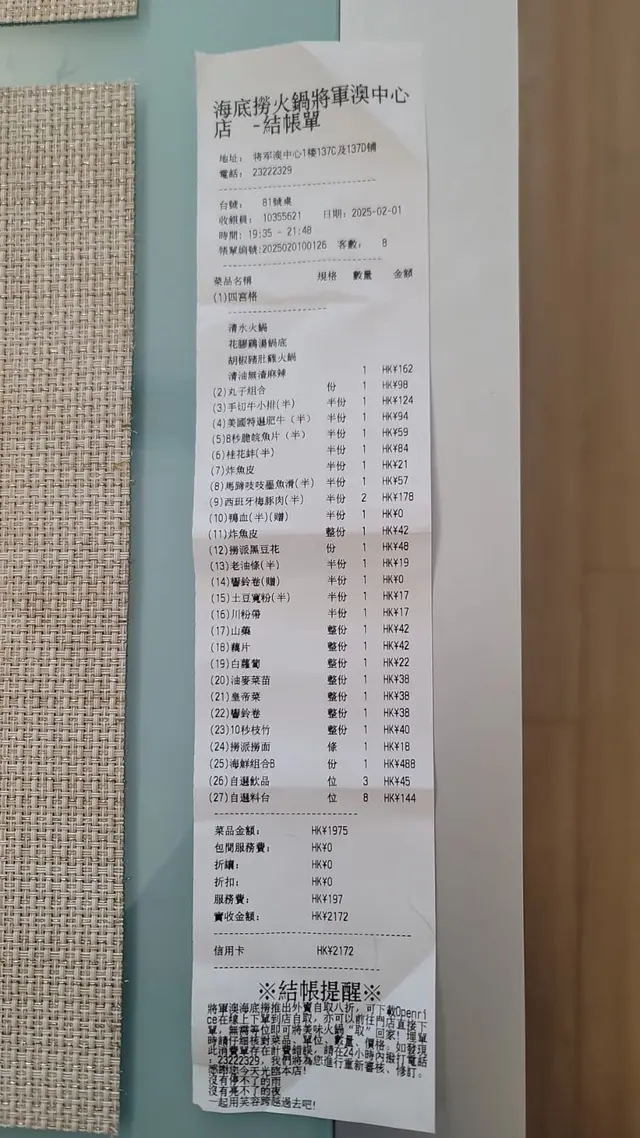 海底撈火鍋將軍澳中心
店 -結帳單
地址: 將軍澳中心1樓137C及137D舖
電話: 23222329
台號: 81號桌
收銀員: 10355621 日期: 2025-02-01
時間: 19:35 - 21:48
帳單編號:2025020100126 客數: 8
菜品名稱 規格 數量 金額
(1)四宮格
清水火鍋
花膠鷄湯鍋底
胡椒豬肚雞火鍋
清油無渣麻辣 1 HK¥162
(2)丸子組合 份 1 HK¥98
(3)手切牛小排(半) 半份 1 HK¥124
(4)美國特選肥牛(半) 半份 1 HK¥94
(5)8秒脆皖魚片(半) 半份 1 HK¥59
(6)桂花蚌(半) 半份 1 HK¥84
(7)炸魚皮 半份 1 HK¥21
(8)馬蹄吱吱墨魚滑(半) 半份 1 HK¥57
(9)西班牙梅豚肉(半) 半份 2 HK¥178
(10)鴨血(半)(贈) 半份 1 HK¥0
(11)炸魚皮 整份 1 HK¥42
(12)撈派黑豆花 份 1 HK¥48
(13)老油條(半) 半份 1 HK¥19
(14)響鈴卷(贈) 半份 1 HK¥0
(15)土豆寬粉(半) 半份 1 HK¥17
(16)川粉帶 半份 1 HK¥17
(17)山藥 整份 1 HK¥42
(18)藕片 整份 1 HK¥42
(19)白蘿蔔 整份 1 HK¥22
(20)油麥菜苗 整份 1 HK¥38
(21)皇帝菜 整份 1 HK¥38
(22)響鈴卷 整份 1 HK¥38
(23)10秒枝竹 整份 1 HK¥40
(24)撈派撈面 條 1 HK¥18
(25)海鮮組合B 份 1 HK¥488
(26)自選飲品 位 3 HK¥45
(27)自選料台 位 8 HK¥144
菜品金額: HK¥1975
包間服務費: HK¥0
折讓: HK¥0
折扣: HK¥0
服務費: HK¥197
實收金額: HK¥2172
信用卡 HK¥2172
※結帳提醒※
將軍澳海底撈推出外賣自取八折,可下載Openri
ce在線上下單到店自取,亦可以前往門店直接下
單,無需等位即可將美味火鍋“取”回家!埋單
時請仔細核對菜品、單位、數量、價格。如發現
此消費單存在計費錯誤,請在24小時內,撥打電話
:23222329,我們將為您進行重新審核、修訂。
感謝您今天光臨本店!
沒有停不了的雨
沒有亮不了的夜
一起用笑容跨越過去吧!